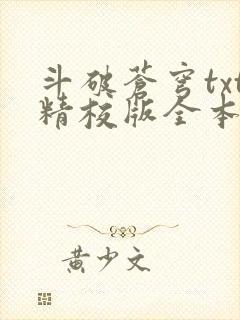 斗破苍穹txt
精校版全本
黄少文